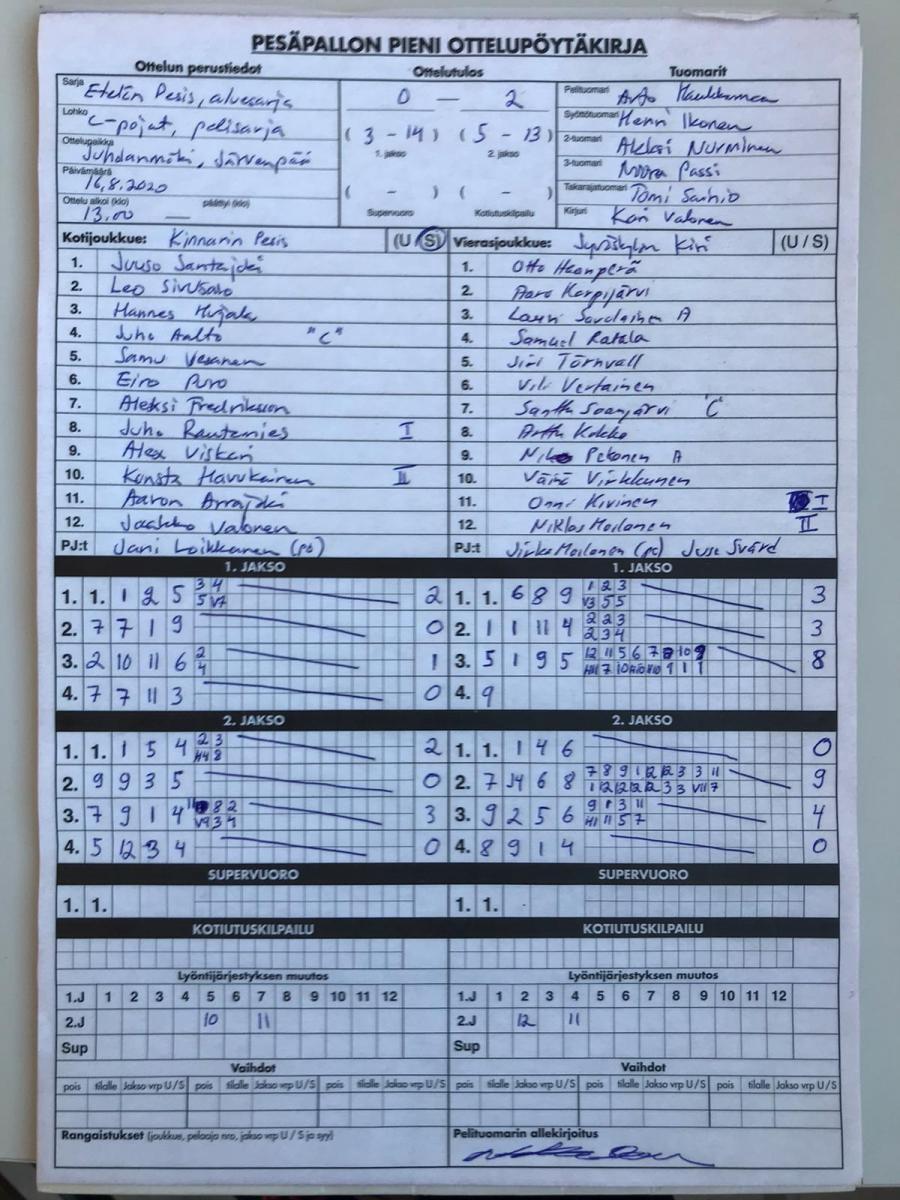 PESÄPALLON PIENI OTTELUPÖYTÄKIRJA
Ottelun perustiedot Ottelutulos Tuomarit
Sarja Etelän Pesis, aluesarja 0 — 2 Pelituomari Arto
Lohko C-pojat, pelisarja ( 3 - 14 ) ( 5 - 13 ) Syöttötuomari Henri Ikonen
1. jakso 2. jakso
Ottelupaikka Juhdanmäki, Järvenpää 2-tuomari Aleksi Nurminen
Päivämäärä 16.8.2020 ( - ) ( - ) 3-tuomari Noora Passi
Takarajatuomari Tomi
Ottelu alkoi (klo) 13.00 — päättyi (klo) Supervuoro Kotiutuskilpailu Kirjuri Kari Valonen
Kotijoukkue: Kinnarin Pesis (U / S) Vierasjoukkue: Jyväskylän Kiri (U / S)
1. Juuso Santajoki 1. Otto Haanperä
2. Leo Sivusalo 2. Aaro Karpijärvi
3. Hannes Hujala 3. Lauri Savolainen A
4. Juho Aalto "C" 4. Samuel Ratala
5. Samu Vesanen 5. Jiri Törnvall
6. Eiro Puro 6. Vili Vertainen
7. Aleksi Fredriksson 7. Santtu Soanjärvi "C"
8. Juho Rautamies I 8. Arttu Kokko
9. Alex Viskari 9. Niko Pekonen A
10. Konsta Havukainen II 10. Väinö Virkkunen
11. Aaron Arrajoki 11. Onni Kivinen I
12. Jaakko Valonen 12. Niklas Moilanen II
PJ:t Jani Loikkanen (pj) PJ:t Jirka Moilanen (pj) Juse Svärd
1. JAKSO 1. JAKSO
1. 1. 1 2 5 3 4 2 1. 1. 6 8 9 1 2 3 3
5 V7 V3 5 5
2. 7 7 1 9 0 2. 1 1 11 4 2 2 3 3
2 3 4
3. 2 10 11 6 2 1 3. 5 1 9 5 12 11 5 6 7 8 10 9 8
4
4. 7 7 11 3 0 4. 9
2. JAKSO 2. JAKSO
1. 1. 1 5 4 2 3 2 1. 1. 1 4 6 0
H4 8
2. 9 9 3 5 0 2. 7 J4 6 8 7 8 9 1 12 12 3 3 11 9
1 12 12 12 12 3 3 VII 7
3. 7 9 1 4 8 2 3 3. 9 2 5 6 9 1 3 11 4
V9 3 4 H1 11 5 7
4. 5 12 3 4 0 4. 8 9 1 4 0
SUPERVUORO SUPERVUORO
1. 1. 1. 1.
KOTIUTUSKILPAILU KOTIUTUSKILPAILU
Lyöntijärjestyksen muutos Lyöntijärjestyksen muutos
1.J 1 2 3 4 5 6 7 8 9 10 11 12 1.J 1 2 3 4 5 6 7 8 9 10 11 12
2.J 10 11 2.J 12 11
Sup Sup
Vaihdot Vaihdot
pois tilalle Jakso vrp U/S pois tilalle Jakso vrp U/S pois tilalle Jakso vrp U/S pois tilalle Jakso vrp U/S pois tilalle Jakso vrp U/S pois tilalle Jakso vrp U/S
Rangaistukset (joukkue, pelaaja nro, jakso vrp U / S ja syy) Pelituomarin allekirjoitus